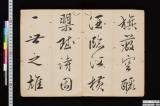 旗蔽空釃
酒臨江橫
槊賦詩固
一世之雄